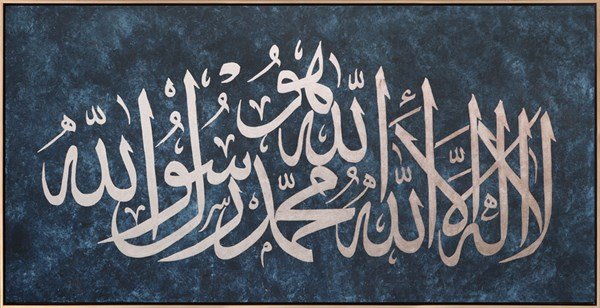 لا اله إلا الله الله هو محمد رسول الله